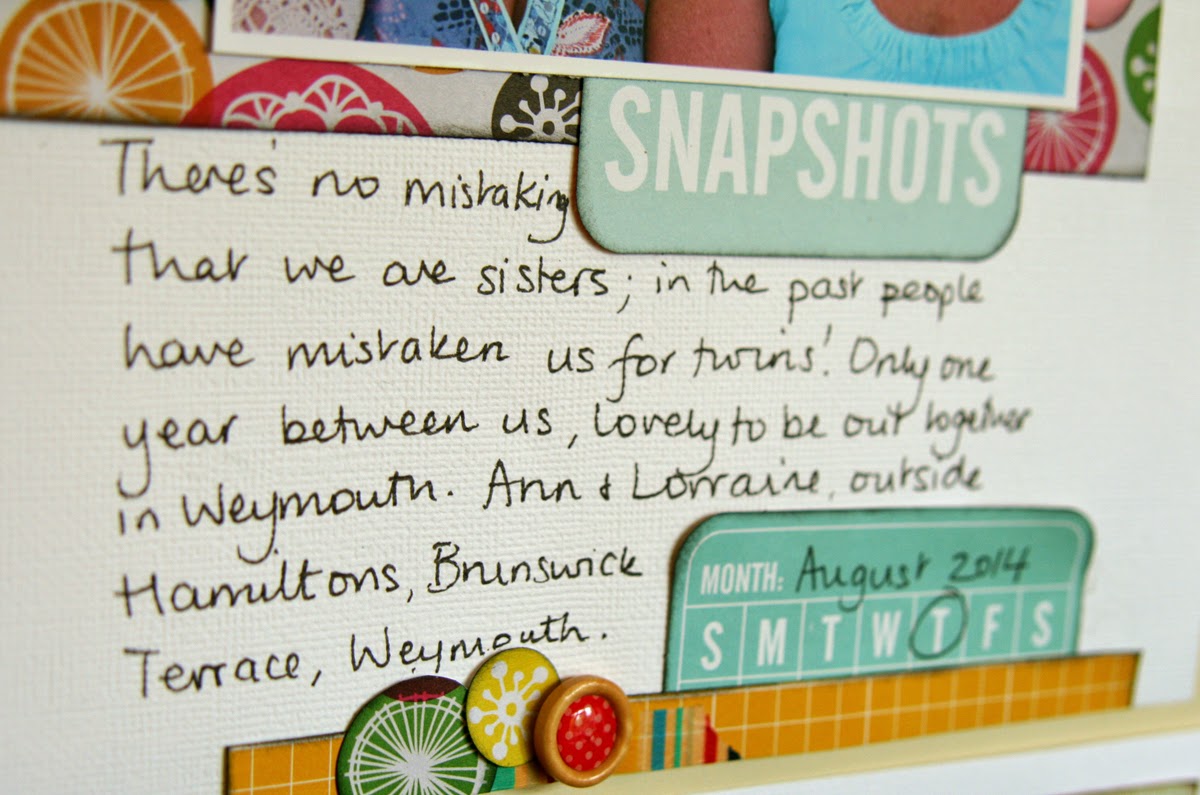 SNAPSHOTS
There's no mistaking
that we are sisters; in the past people
have mistaken us for twins! Only one
year between us, lovely to be out together
in Weymouth. Ann & Lorraine, outside
Hamiltons, Brunswick
Terrace, Weymouth.
MONTH: August 2014
S M T W T F S